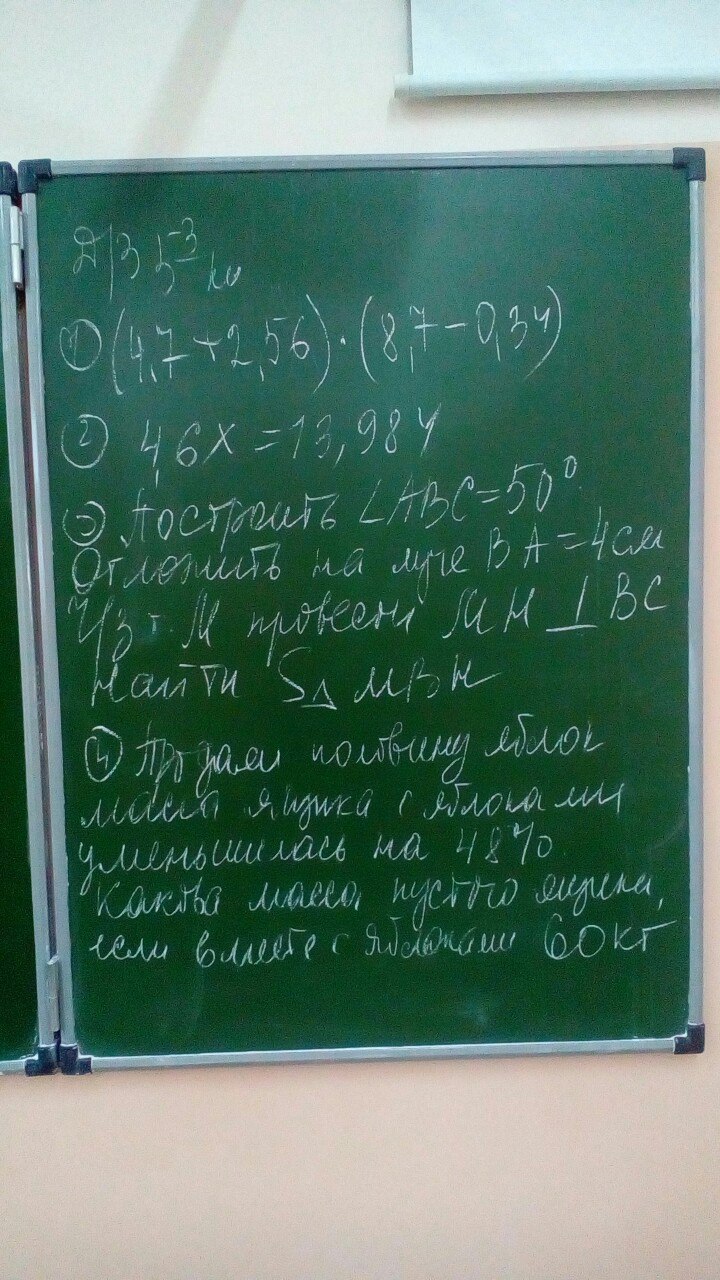 Д/З
① (4,7+2,56)·(8,7-0,34)
② 4,6x=13,984
③ Построить ∠ABC=50°.
Отложить на луче BA=4см
Ч/з т. М провести MN⊥BC
Найти S△ MBN
④ Продали половину яблок
масса ящика с яблоками
уменьшилась на 48%.
Какова масса пустого ящика,
если вместе с яблоками 60кг